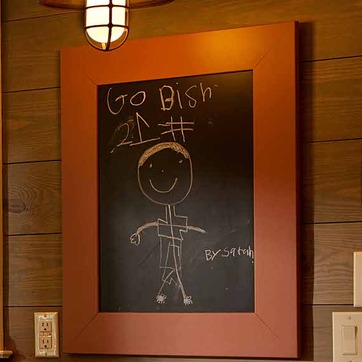 Go Bish
21 #
By Satah